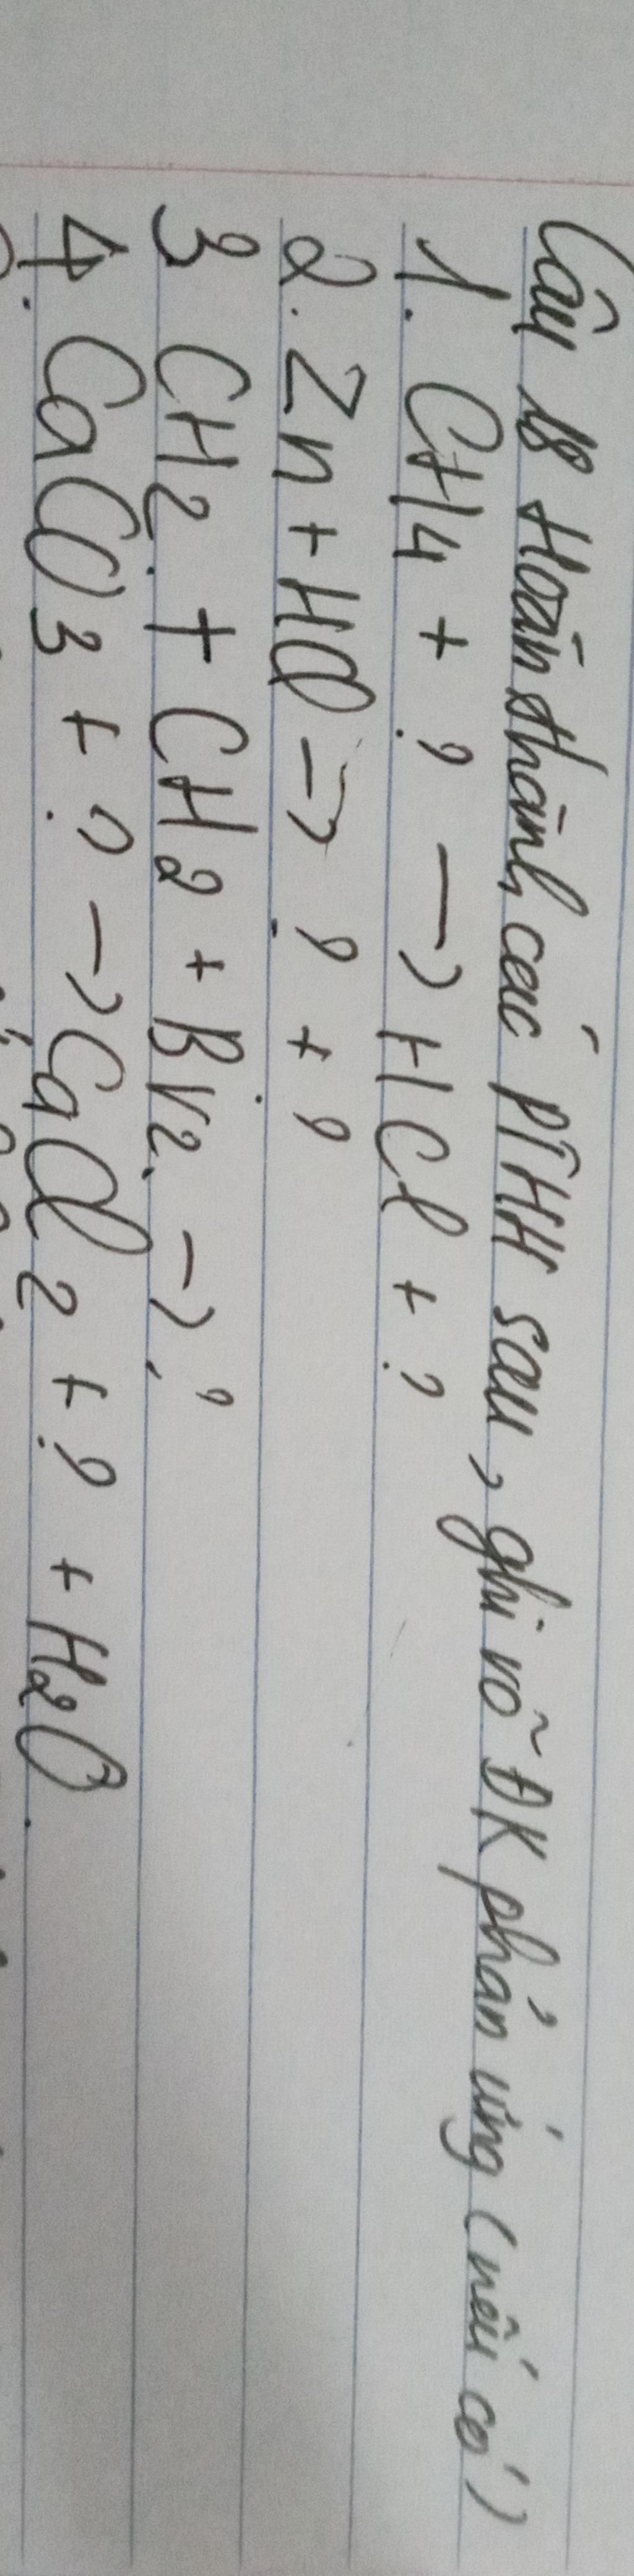 Câu 18 Hoàn thành các PTHH sau, ghi rõ ĐK phản ứng (nếu có)
1. CH4 + ? → HCl + ?
2. Zn + HCl → ? + ?
3 CH2 + CH2 + Br2. → ?
4. CaCO3 + ? → CaCl2 + ? + H2O.